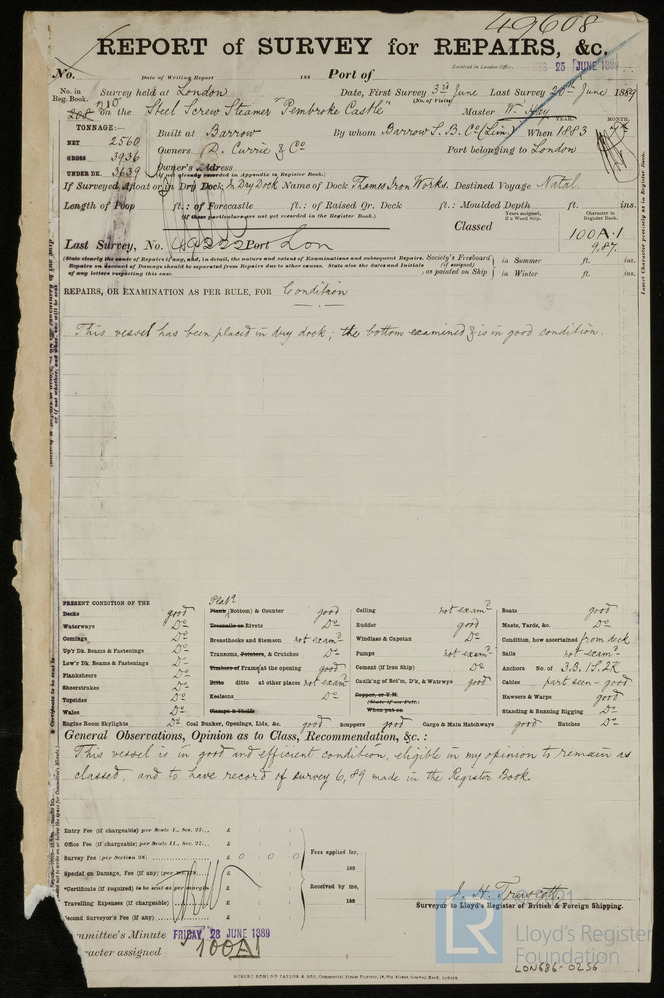 49608
REPORT of SURVEY for REPAIRS, &c.
Received in London Office, 25 JUNE 1889
No. Date of Writing Report 188 Port of
No. in Reg. Book. Survey held at London Date, First Survey 3rd June Last Survey 20th June 1889
(No. of Visits)
210 268 on the Steel Screw Steamer "Pembroke Castle" Master W. Hay
TONNAGE:— YEAR. MONTH.
Built at Barrow By whom Barrow S. B. Co (Lim) When 1883
NET 2560
GROSS 3936 Owners D. Currie & Co Port belonging to London
UNDER DK. 3639 Owner's Address
(if not already recorded in Appendix to Register Book.)
If Surveyed Afloat or in Dry Dock In Dry Dock Name of Dock Thames Iron Works. Destined Voyage Natal.
Length of Poop ft.: of Forecastle ft.: of Raised Qr. Deck ft.: Moulded Depth ft. ins.
(If these particulars are not yet recorded in the Register Book.)
Years assigned, if a Wood Ship. Character in Register Book.
Classed 100A.1
9,87.
Last Survey, No. 49222 Port Lon
(State clearly the cause of Repairs if any, and, in detail, the nature and extent of Examinations and subsequent Repairs. Repairs on account of Damage should be separated from Repairs due to other causes. State also the dates and Initials of any letters respecting this case.
Society's Freeboard (if assigned) as painted on Ship in Summer ft. ins.
in Winter ft. ins.
Insert Character precisely as in Register Book.
REPAIRS, OR EXAMINATION AS PER RULE, FOR Condition
This vessel has been placed in dry dock; the bottom examined & is in good condition.
PRESENT CONDITION OF THE
Decks good
Waterways Do
Comings Do
Up'r Dk. Beams & Fastenings Do
Low'r Dk. Beams & Fastenings Do
Planksheers Do
Sheerstrakes Do
Topsides Do
Wales Do
Engine Room Skylights Do
Plat'g
Plank (Bottom) & Counter good
Treenails or Rivets Do
Breasthooks and Stemson not exam'd
Transoms, Pointers, & Crutches Do
Timbers of Frame at the opening good
Ditto ditto at other places not exam'd
Keelsons Do
Clamps & Shelfs
Coal Bunker, Openings, Lids, &c. good
Scuppers good
Ceiling not exam'd
Rudder good
Windlass & Capstan Do
Pumps not exam'd
Cement (if Iron Ship) Do
Caulk'ng of Bot'm, D'k, & Watrwys good
Copper, or Y.M.
(State if on Felt.)
When put on
Cargo & Main Hatchways good
Boats good
Masts, Yards, &c. Do
Condition, how ascertained from deck
Sails not exam'd
Anchors No. of 3.B. 1S. 2K
Cables part seen - good
Hawsers & Warps good
Standing & Running Rigging Do
Hatches Do
General Observations, Opinion as to Class, Recommendation, &c. :
This vessel is in good and efficient condition, eligible in my opinion to remain as
classed, and to have record of survey 6,89 made in the Register Book.
Entry Fee (if chargeable) per Scale I., Sec. 27... £ : :
Office Fee (if chargeable) per Scale II., Sec. 27... £ : :
Survey Fee (per Section 28) £ 0 : 0 : 0
Special on Damage, Fee (if any) (per Sec. 28) £
*Certificate (if required) to be sent as per margin £
Travelling Expenses (if chargeable) £
Second Surveyor's Fee (if any) £
Fees applied for,
188
Received by me,
188
J. H. Truscott
Surveyor to Lloyd's Register of British & Foreign Shipping.
Committee's Minute FRIDAY, 28 JUNE 1889
Character assigned 100A1
LR
Lloyd's Register
Foundation
LON686-0256